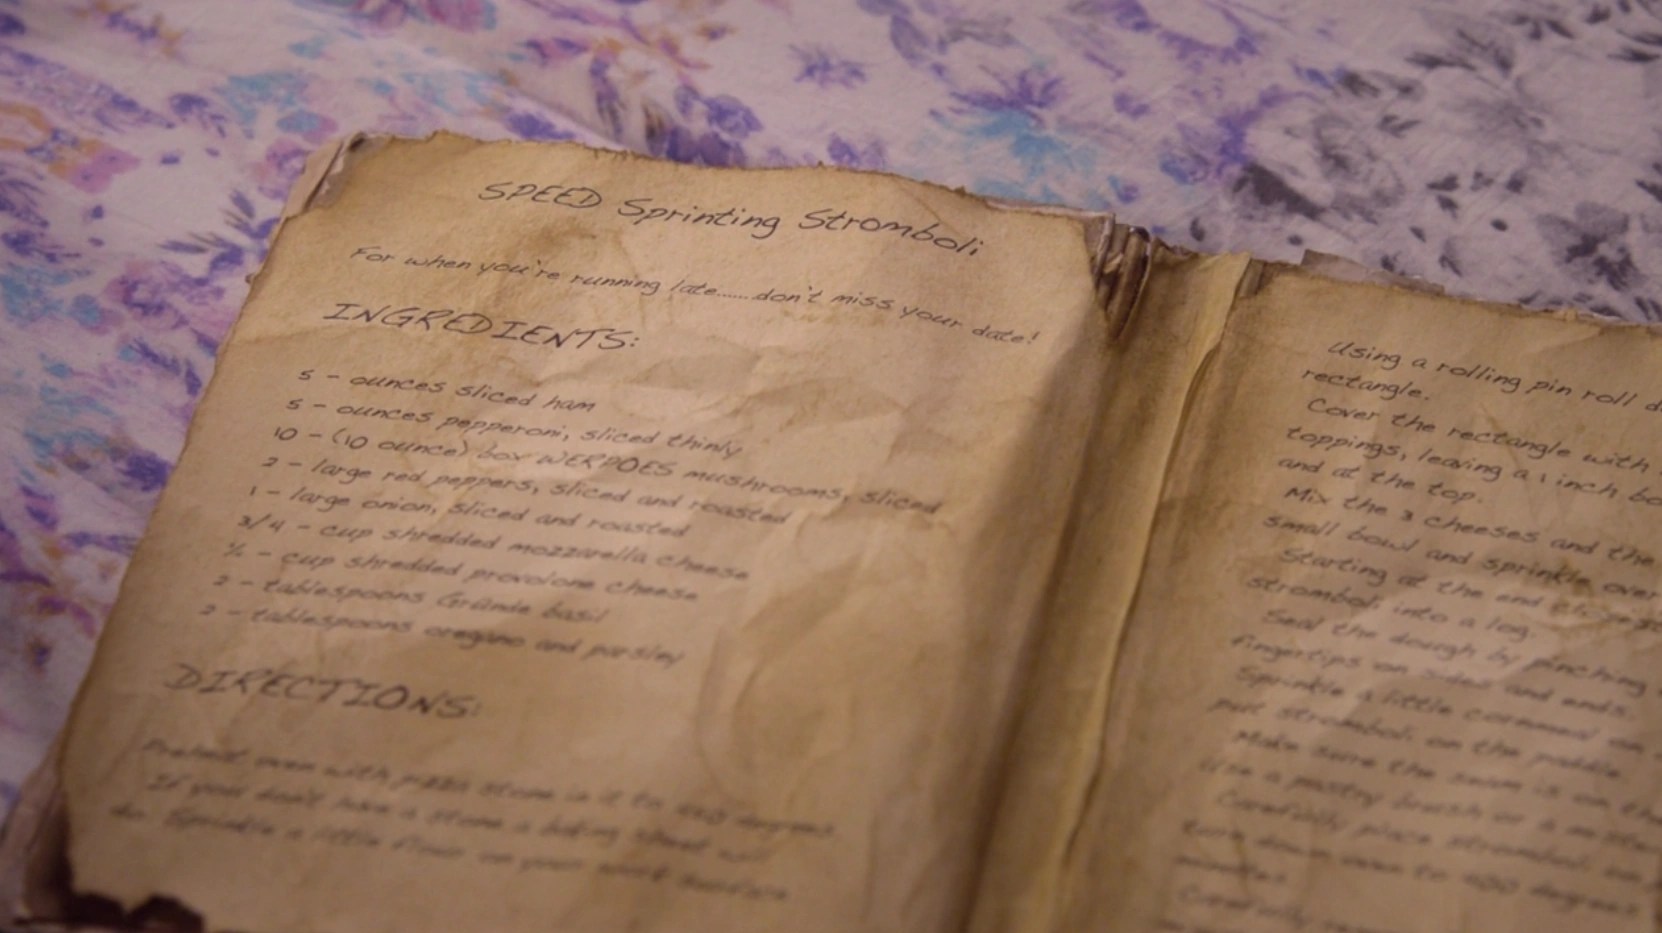 SPEED Sprinting Stromboli
For when you're running late.......don't miss your date!
INGREDIENTS:
5 - ounces sliced ham
5 - ounces pepperoni, sliced thinly
10 - (10 ounce) box WERPOES mushrooms, sliced
2 - large red peppers, sliced and roasted
1 - large onion, sliced and roasted
3/4 - cup shredded mozzarella cheese
cup shredded provolone cheese
2 - tablespoons Grande basil
2 - tablespoons oregano and parsley
DIRECTIONS:
Preheat oven with pizza stone in it to 450 degrees.
If you don't have a stone a baking sheet will
do. Sprinkle a little flour on your work surface
Using a rolling pin roll
rectangle.
Cover the rectangle with
toppings, leaving a 1 inch
and at the top.
Mix the 3 cheeses and the
small bowl and sprinkle over
Starting at the end
stromboli into a log.
Seal the dough by pinching
fingertips on sides and ends.
Sprinkle a little cornmeal on
put stromboli on the paddle
Make sure the seam is on the
Use a pastry brush or a
Carefully place stromboli on
turn down oven to 400 degrees
minutes
Carefully